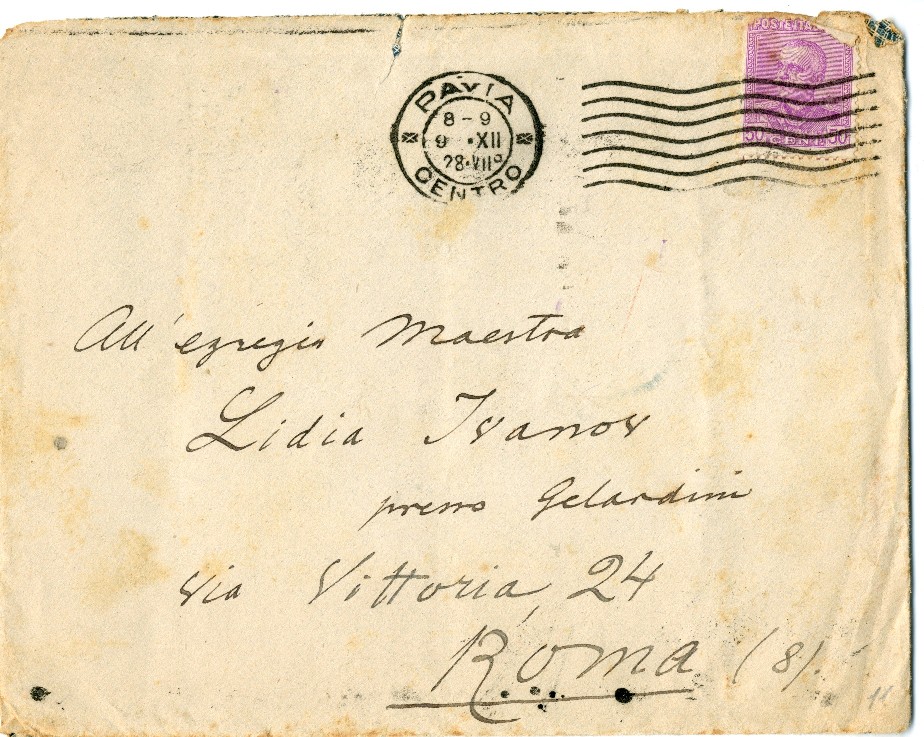 POSTE ITA
PAVIA
8-9
9 ·XII
28·VIIº
CENTRO
50 CENT. 50
All' egregio Maestra
Lidia Ivanov
presso Gelardini
via Vittoria, 24
Roma (8).
11